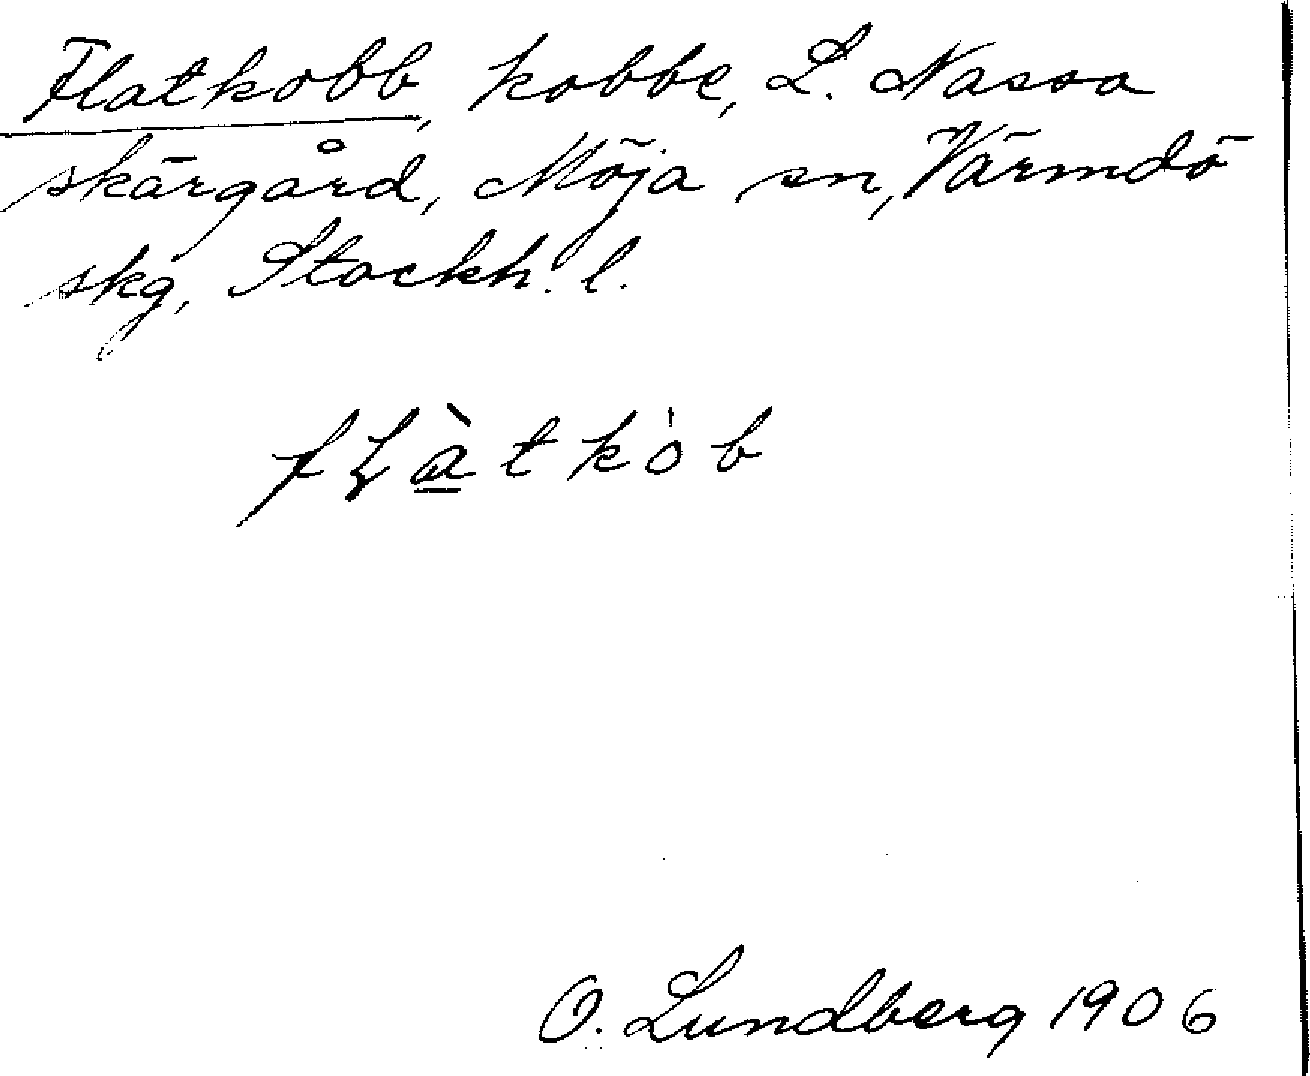 Flatkobb, kobbe, L. Nassa
skärgård, Möja sn, Värmdö
skg, Stockh. l.
fḷà̲tkòb
O. Lundberg 1906